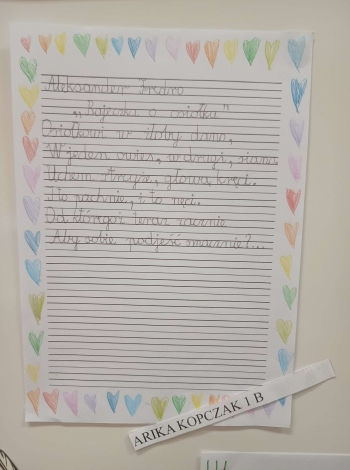 Aleksander Fredro
"Bajeczka o osiołku"
Osiołkowi w żłoby dano,
W jeden owies, w drugi, siano.
Uchem strzyże, głową kręci.
I to pachnie, i to nęci.
Od któregoż teraz zacznie
Aby sobie podjeść smacznie?...
ARIKA KOPCZAK 1 B